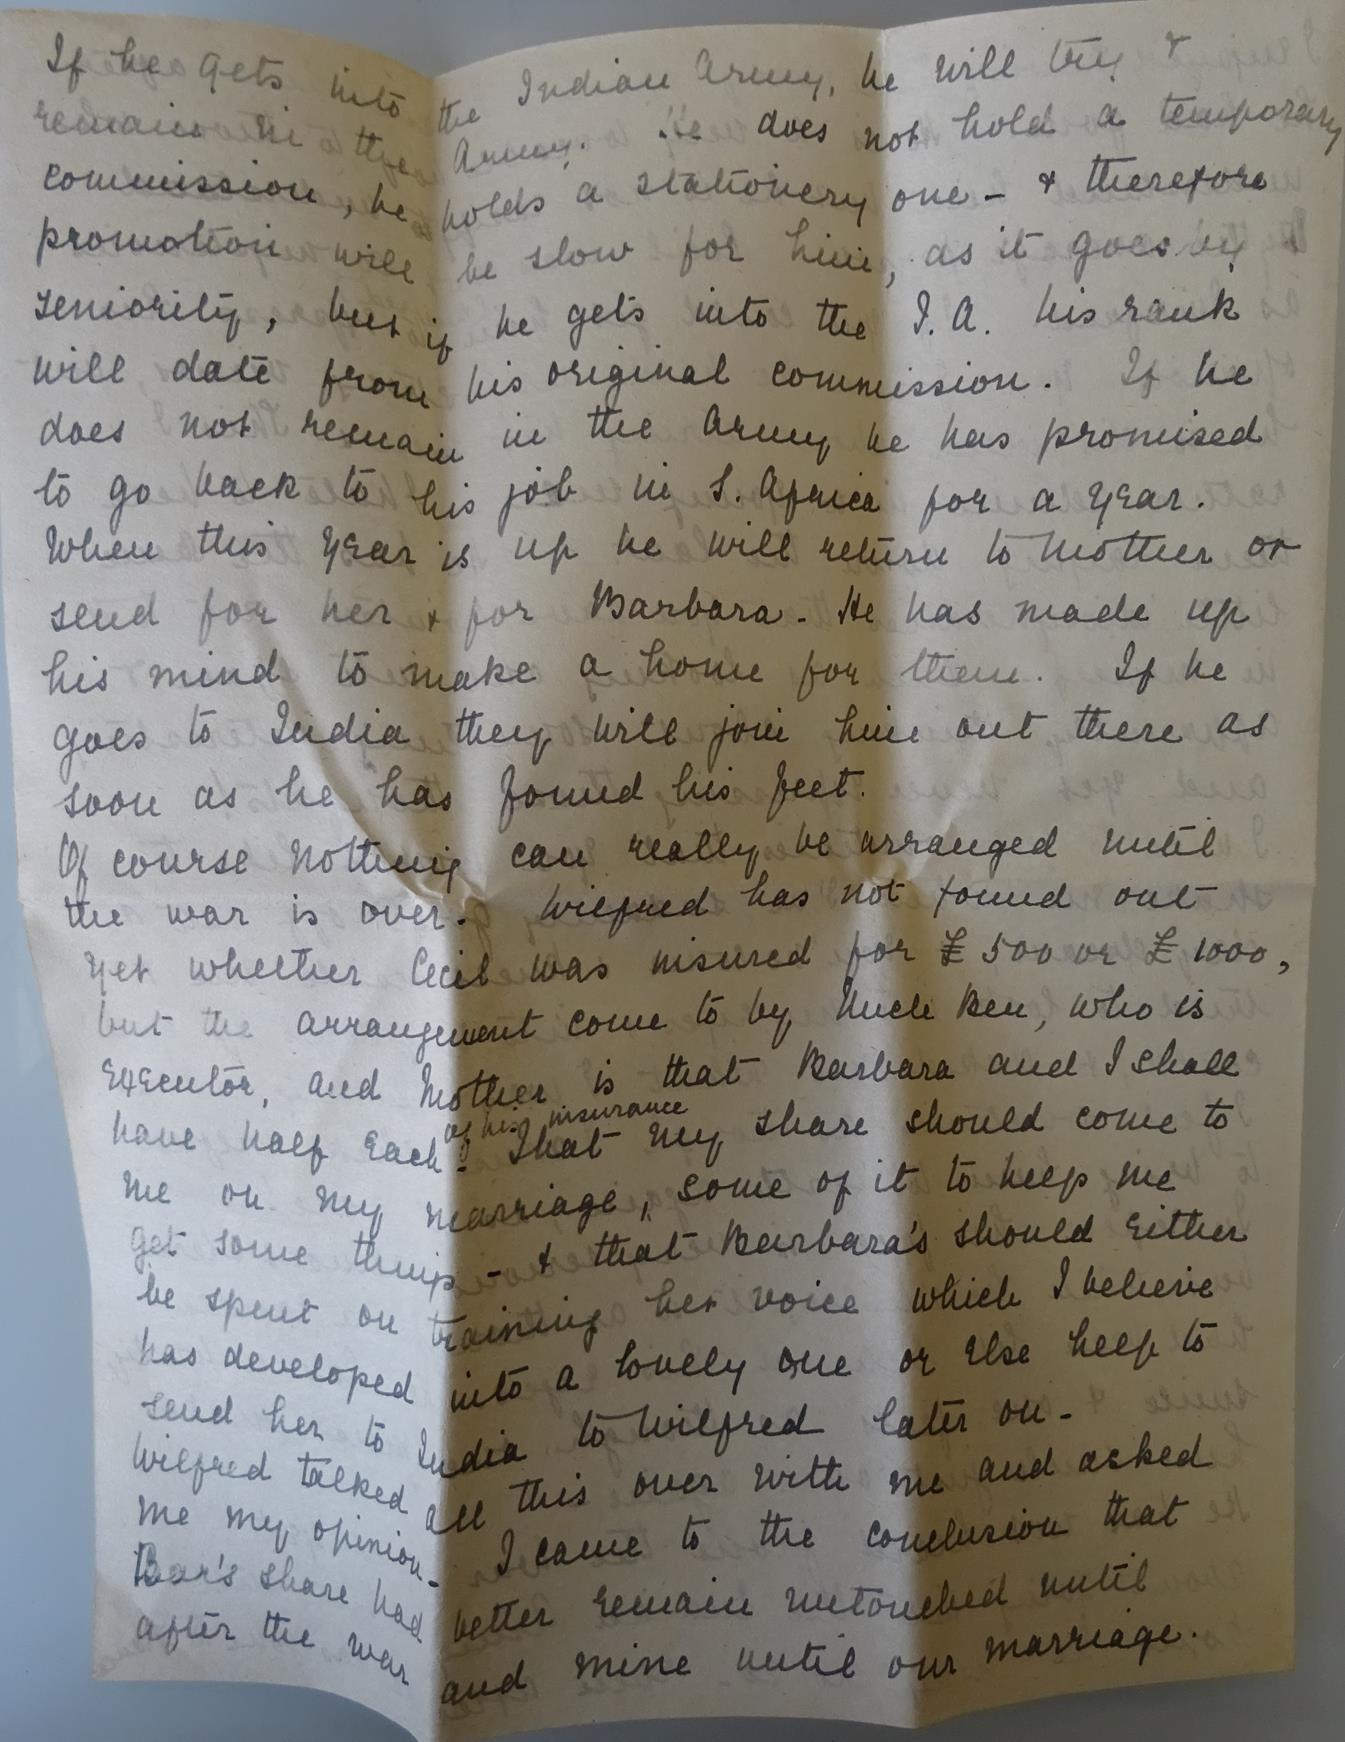 If he gets into the Indian Army, he will try &
remain in the Army. He does not hold a temporary
commission, he holds a stationery one - & therefore
promotion will be slow for him, as it goes by
seniority, but if he gets into the I.A. his rank
will date from his original commission. If he
does not remain in the Army he has promised
to go back to his job in S. Africa for a year.
When this year is up he will return to Mother or
send for her & for Barbara. He has made up
his mind to make a home for them. If he
goes to India they will join him out there as
soon as he has found his feet.
Of course nothing can really be arranged until
the war is over. Wilfred has not found out
yet whether Cecil was insured for £500 or £1000,
but the arrangement come to by Uncle Ben, who is
Executor, and Mother is that Barbara and I shall
of his insurance
have half each. That my share should come to
me on my marriage, some of it to help me
get some things - & that Barbara's should either
be spent on training her voice which I believe
has developed into a lovely one or else help to
send her to India to Wilfred later on -
Wilfred talked all this over with me and asked
me my opinion - I came to the conclusion that
Bar's share had better remain untouched until
after the war and mine until our marriage.